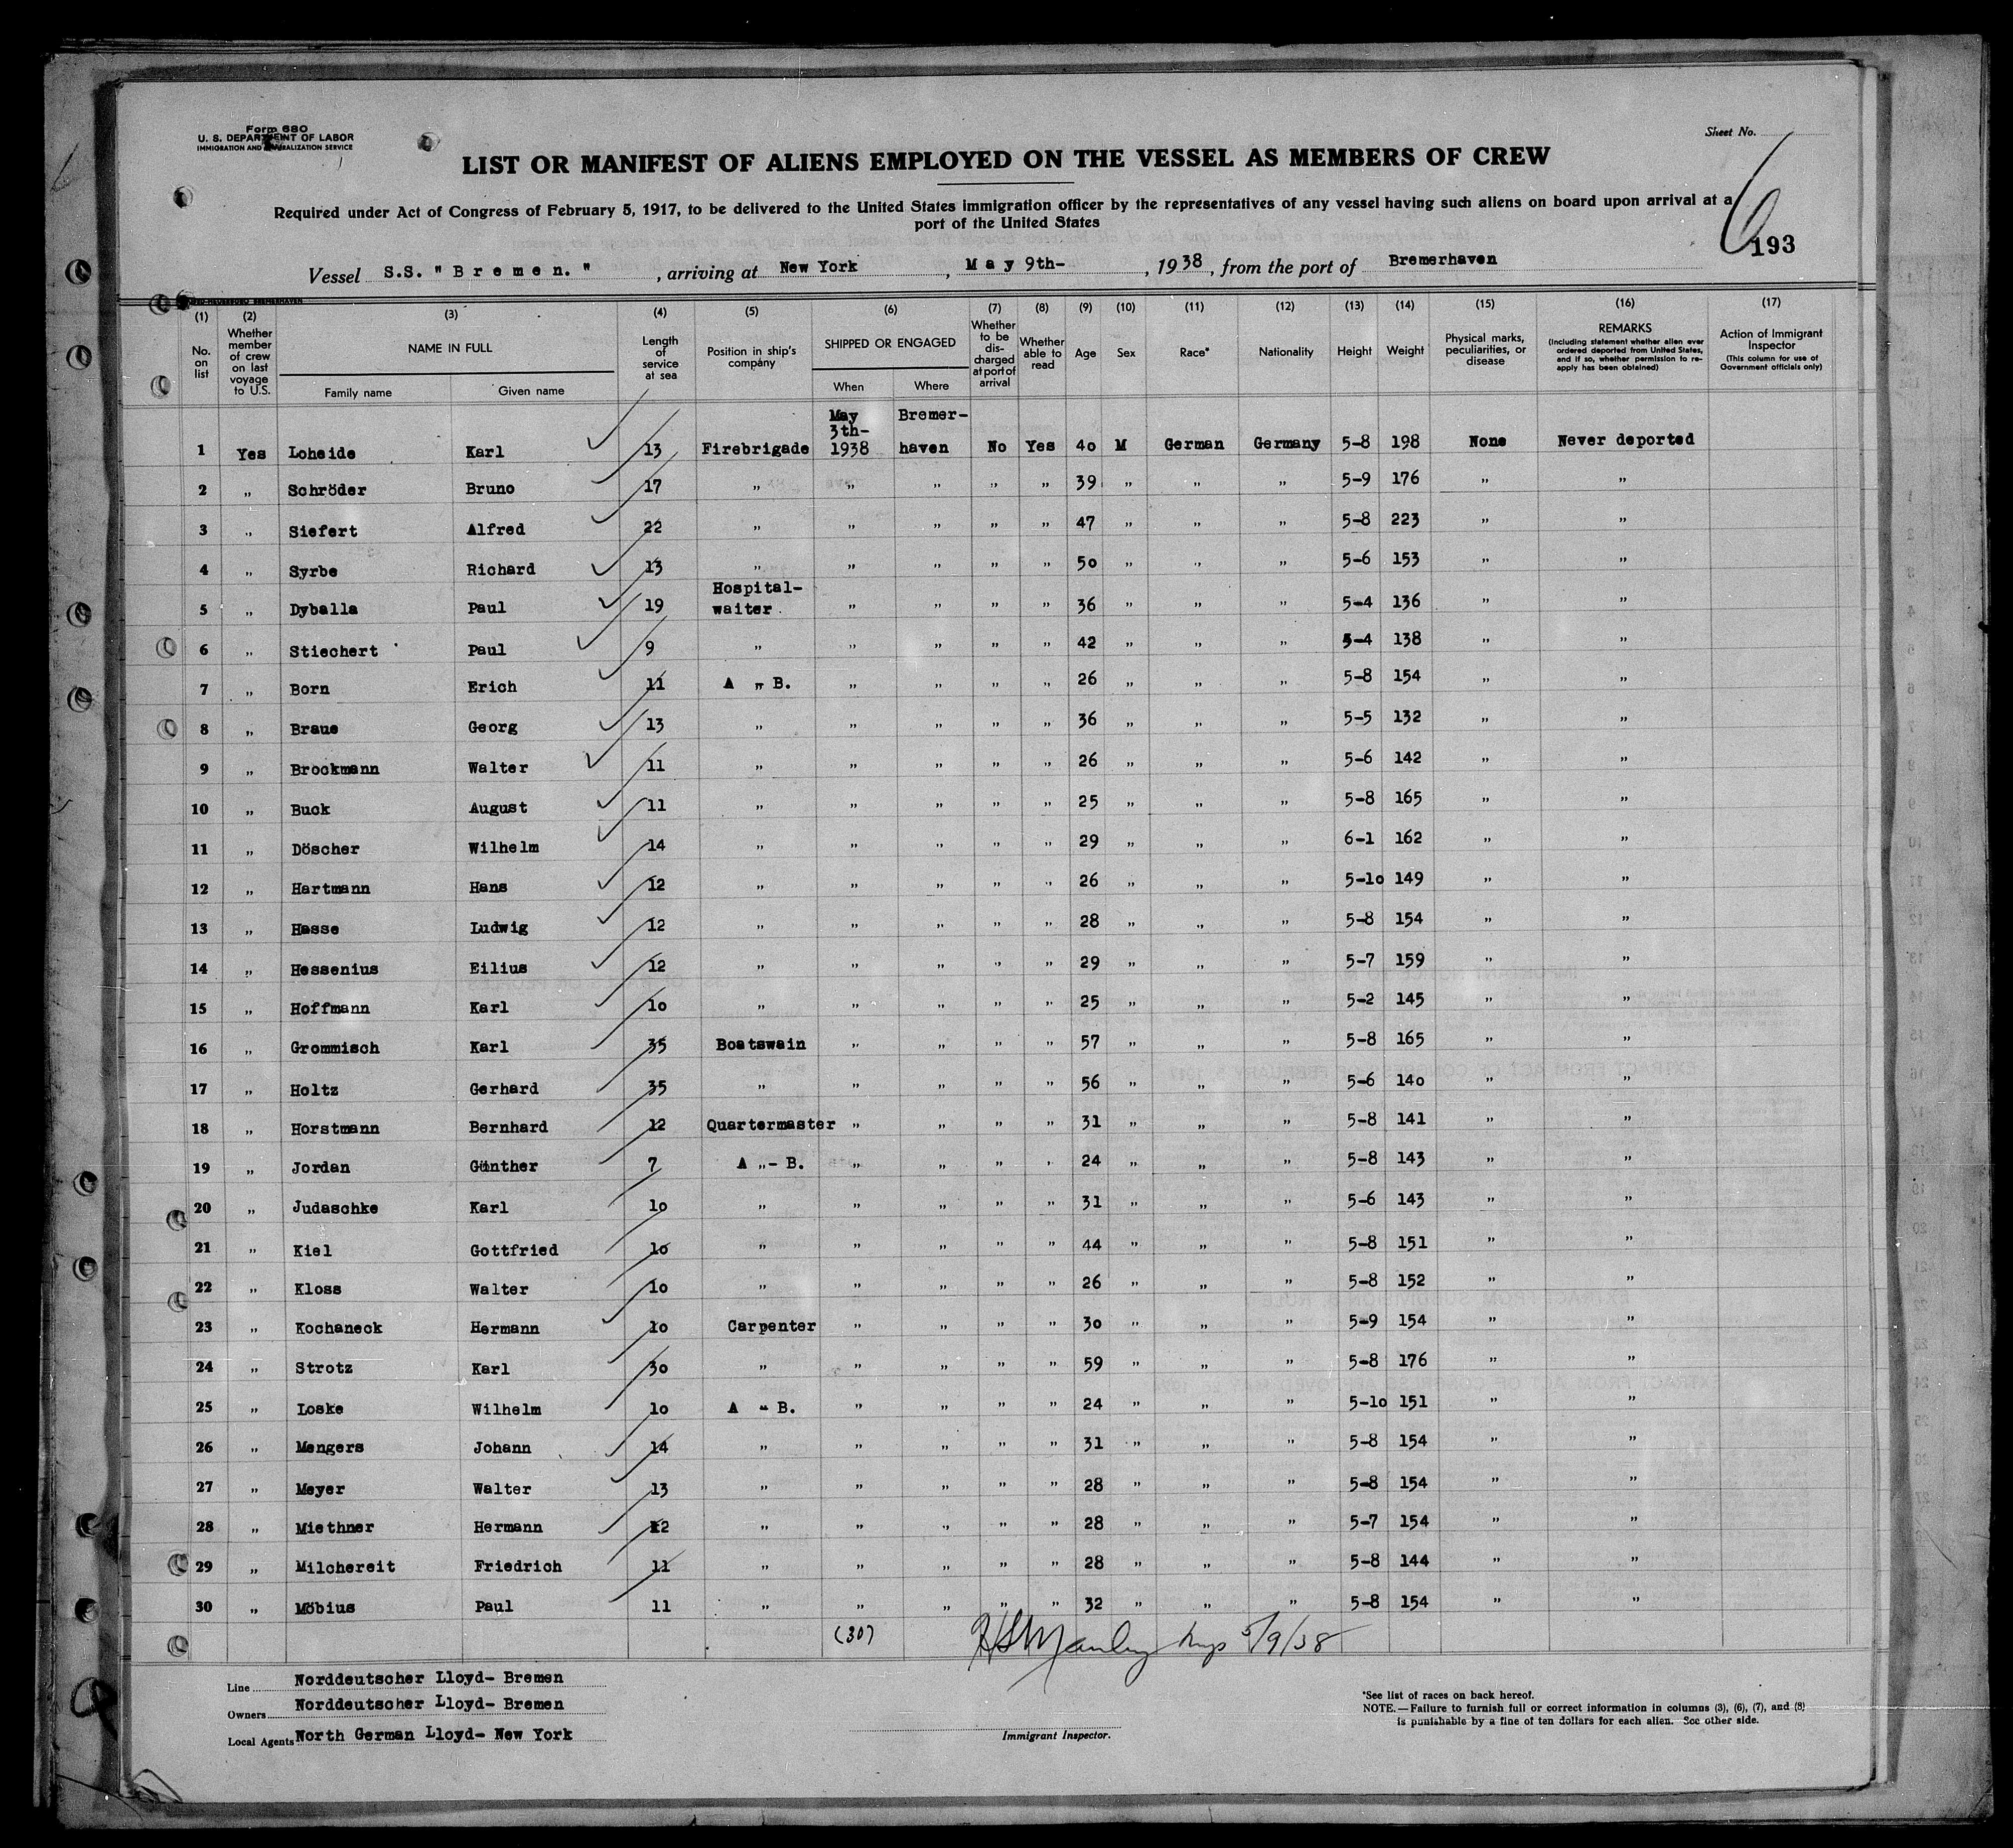 Form 680
U. S. DEPARTMENT OF LABOR
IMMIGRATION AND NATURALIZATION SERVICE
Sheet No.
6
LIST OR MANIFEST OF ALIENS EMPLOYED ON THE VESSEL AS MEMBERS OF CREW
Required under Act of Congress of February 5, 1917, to be delivered to the United States immigration officer by the representatives of any vessel having such aliens on board upon arrival at a
port of the United States
193
Vessel S.S. "Bremen." , arriving at New York , May 9th- , 1938, from the port of Bremerhaven
(1) (2) (3) (4) (5) (6) (7) (8) (9) (10) (11) (12) (13) (14) (15) (16) (17)
No. on list Whether member of crew on last voyage to U.S. NAME IN FULL Family name Given name Length of service at sea Position in ship's company SHIPPED OR ENGAGED When Where Whether to be discharged at port of arrival Whether able to read Age Sex Race* Nationality Height Weight Physical marks, peculiarities, or disease REMARKS (Including statement whether alien ever ordered deported from United States, and if so, whether permission to reapply has been obtained) Action of Immigrant Inspector (This column for use of Government officials only)
1 Yes Loheide Karl 13 Firebrigade May 3th- 1938 Bremer- haven No Yes 40 M German Germany 5-8 198 None Never deported
2 " Schröder Bruno 17 " " " " " 39 " " " 5-9 176 " "
3 " Siefert Alfred 22 " " " " " 47 " " " 5-8 223 " "
4 " Syrbe Richard 13 " " " " " 50 " " " 5-6 153 " "
5 " Dyballa Paul 19 Hospital- waiter " " " " 36 " " " 5-4 136 " "
6 " Stiechert Paul 9 " " " " " 42 " " " 5-4 138 " "
7 " Born Erich 11 A " B. " " " " 26 " " " 5-8 154 " "
8 " Braue Georg 13 " " " " " 36 " " " 5-5 132 " "
9 " Brockmann Walter 11 " " " " " 26 " " " 5-6 142 " "
10 " Buck August 11 " " " " " 25 " " " 5-8 165 " "
11 " Döscher Wilhelm 14 " " " " " 29 " " " 6-1 162 " "
12 " Hartmann Hans 12 " " " " " 26 " " " 5-10 149 " "
13 " Hasse Ludwig 12 " " " " " 28 " " " 5-8 154 " "
14 " Hessenius Eilius 12 " " " " " 29 " " " 5-7 159 " "
15 " Hoffmann Karl 10 " " " " " 25 " " " 5-2 145 " "
16 " Grommisch Karl 35 Boatswain " " " " 57 " " " 5-8 165 " "
17 " Holtz Gerhard 35 " " " " " 56 " " " 5-6 140 " "
18 " Horstmann Bernhard 12 Quartermaster " " " " 31 " " " 5-8 141 " "
19 " Jordan Günther 7 A "- B. " " " " 24 " " " 5-8 143 " "
20 " Judaschke Karl 10 " " " " " 31 " " " 5-6 143 " "
21 " Kiel Gottfried 10 " " " " " 44 " " " 5-8 151 " "
22 " Kloss Walter 10 " " " " " 26 " " " 5-8 152 " "
23 " Kochaneck Hermann 10 Carpenter " " " " 30 " " " 5-9 154 " "
24 " Strotz Karl 30 " " " " " 59 " " " 5-8 176 " "
25 " Loske Wilhelm 10 A " B. " " " " 24 " " " 5-10 151 " "
26 " Mengers Johann 14 " " " " " 31 " " " 5-8 154 " "
27 " Meyer Walter 13 " " " " " 28 " " " 5-8 154 " "
28 " Miethner Hermann 12 " " " " " 28 " " " 5-7 154 " "
29 " Milchereit Friedrich 11 " " " " " 28 " " " 5-8 144 " "
30 " Möbius Paul 11 " " " " " 32 " " " 5-8 154 " "
(30) 5/9/38
Line Norddeutscher Lloyd- Bremen
Owners Norddeutscher Lloyd- Bremen
Local Agents North German Lloyd- New York
Immigrant Inspector.
*See list of races on back hereof.
NOTE.—Failure to furnish full or correct information in columns (3), (6), (7), and (8)
is punishable by a fine of ten dollars for each alien. See other side.